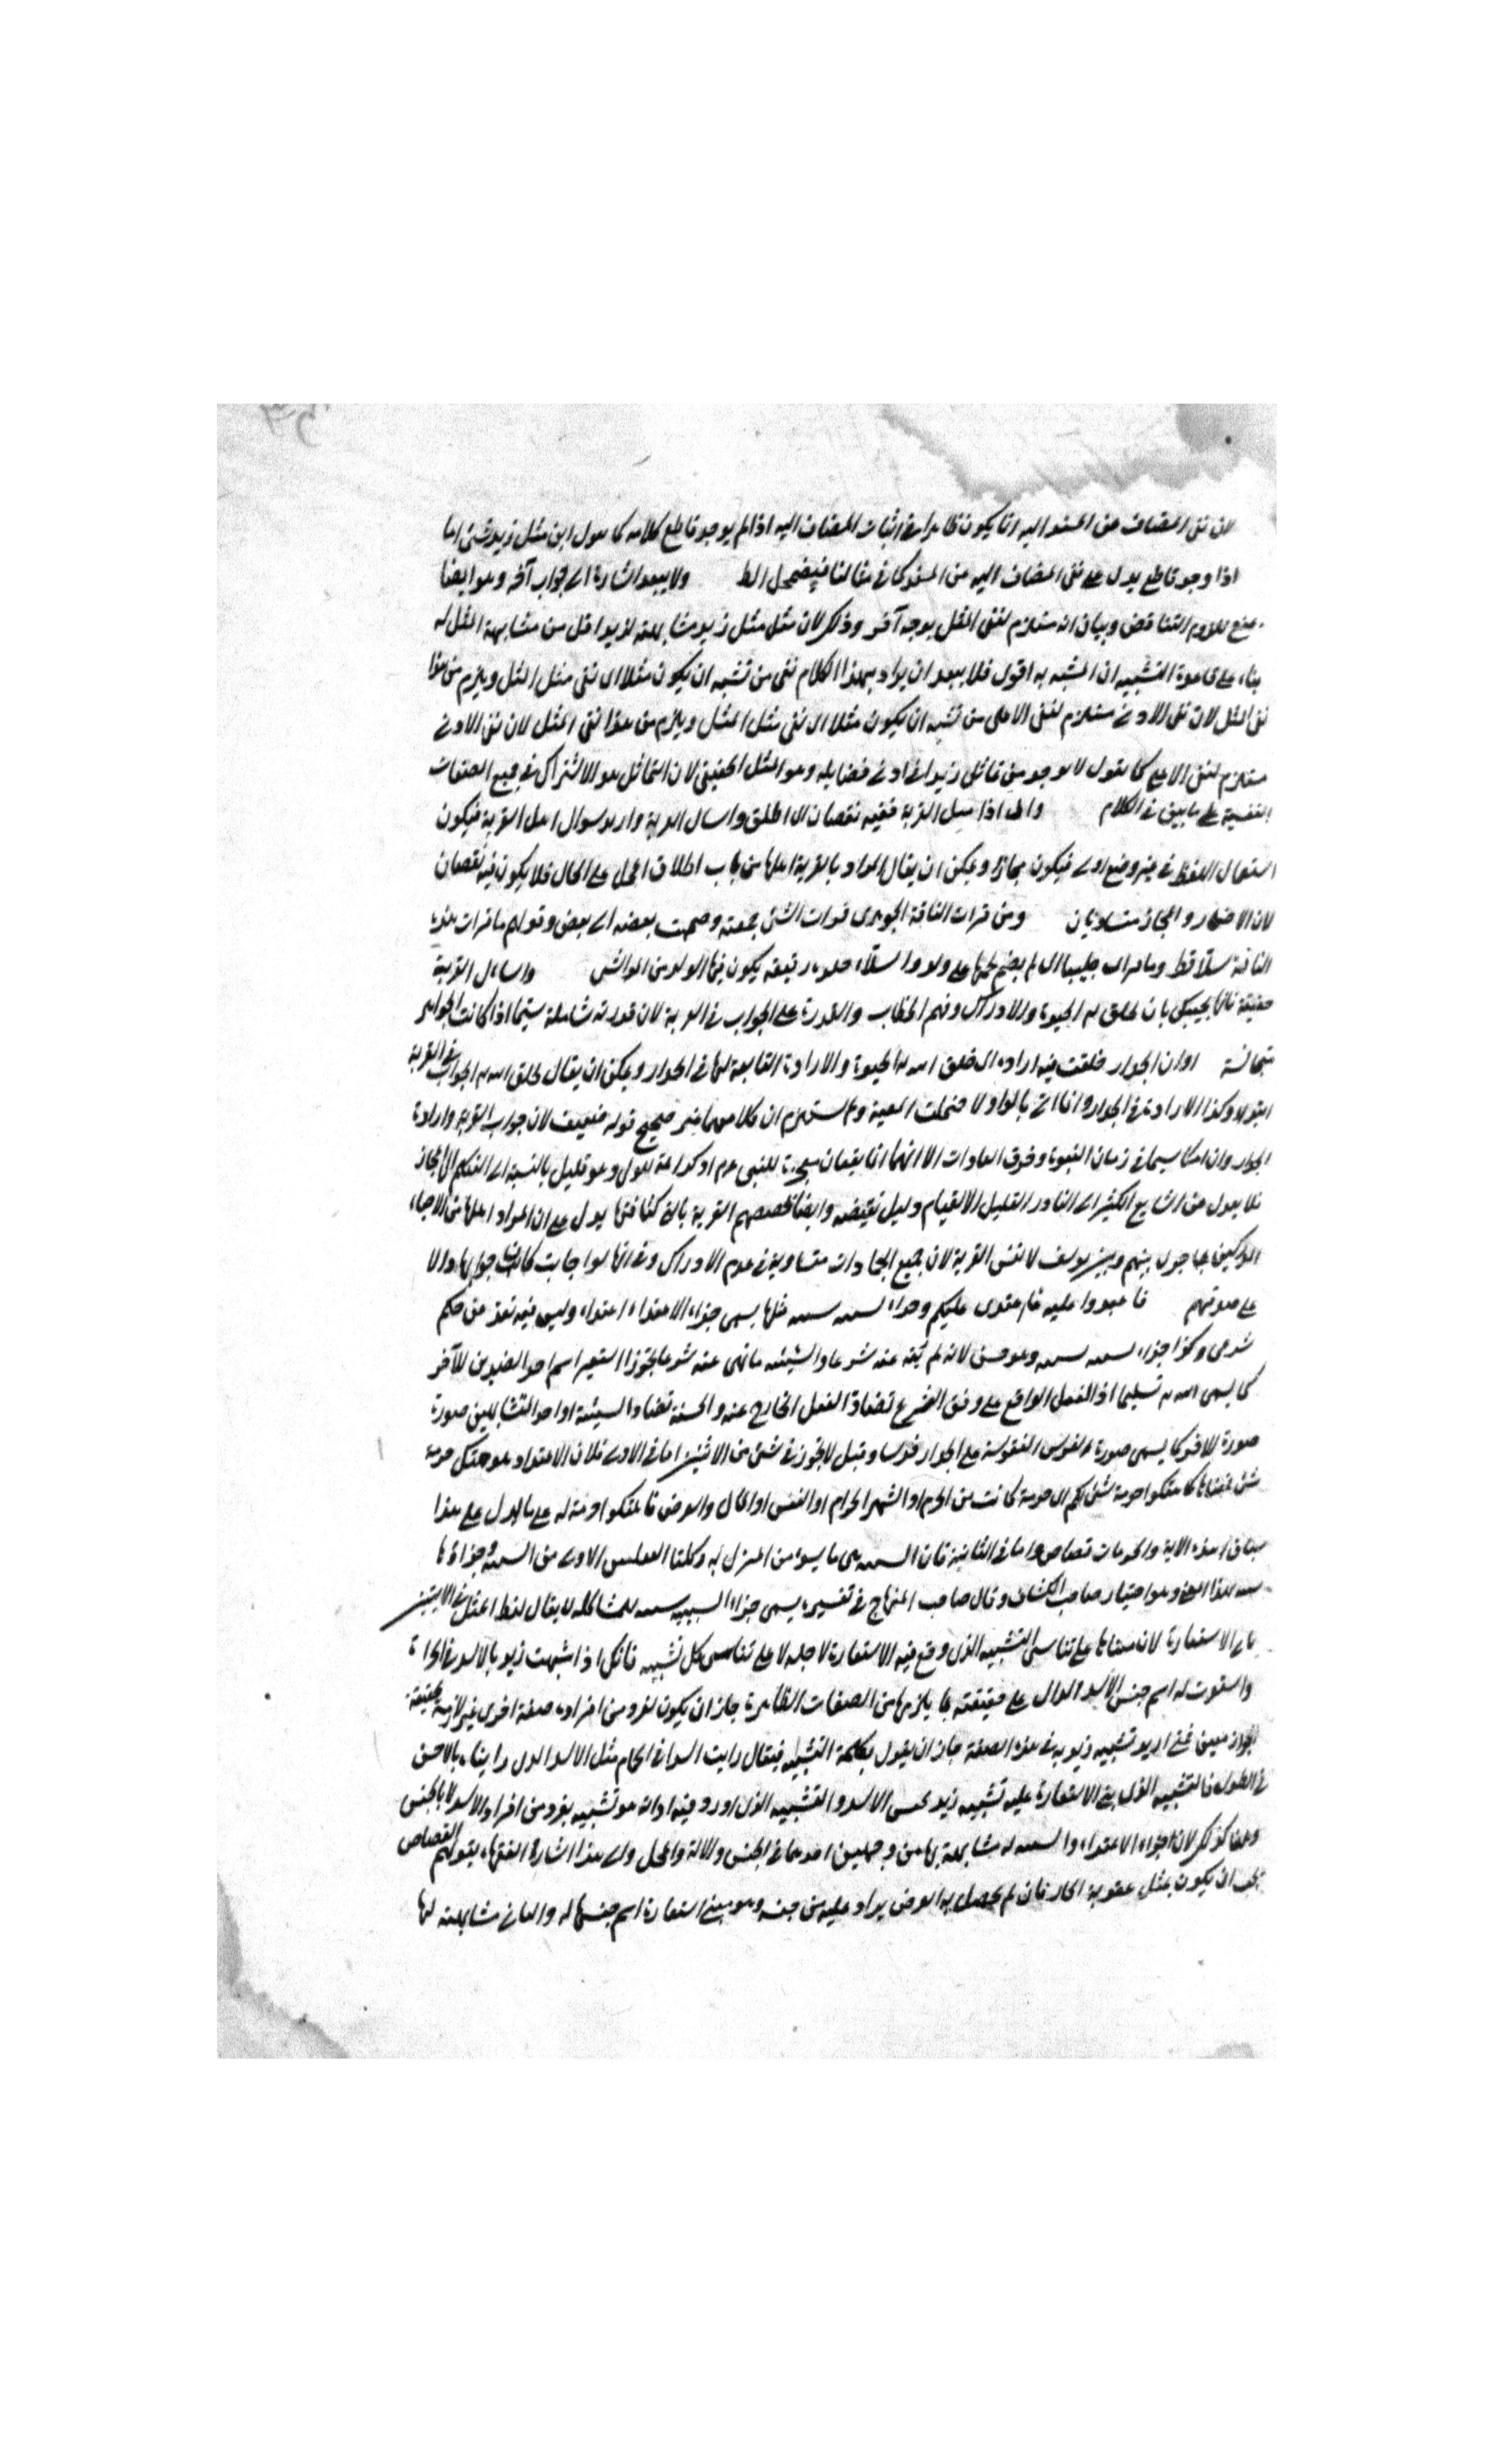 لان نفى المضاف عن المسند اليه انا يكون ظاهرا فى اثبات المضاف اليه اذا لم يوجد قاطع كلامه كما يقول ابن مثل زيد شئ اما
اذا وجد قاطع يدل على نفى المضاف اليه عن المسند كما فى مثالنا فيضمحل الظ ولا يبعد اشارة الى جواب آخر وهو ايضا
منع للزوم التناقض وبيان انه مستلزم لنفى المثل بوجه آخر وذلك لان مثل مثل زيد مشابهته لزيد اقل من مشابهة المثل له
بناء على قاعدة التشبيه ان المشبه به اقول فلا يبعد ان يراد بهذا الكلام نفى من تشبه ان يكون مثلا اى نفى مثل المثل ويلزم من هذا
نفى المثل لان نفى الادنى مستلزم لنفى الاعلى من تشبه ان يكون مثلا اى نفى مثل المثل ويلزم من هذا نفى المثل لان نفى الادنى
مستلزم لنفى الاعلى كما يقول لا يوجد من يماثل زيدا فى ادنى فضايله وهو المثل الحقيقى لان التماثل هو الاشتراك فى جميع الصفات
النفسية على ما بين فى الكلام واما اذا سيل القرية ففيه نقصان اى اطلق واسال القرية واريد سوال اهل القرية فيكون
استعمال اللفظ فى غير وضع اول فيكون مجازا ويمكن ان يقال المراد بالقرية اهلها من باب اطلاق المحل على الحال فلا يكون فيه نقصان
لان الاضمار والمجاز متساويان ومن قرات الناقة الجوهرى قرات الشئ جمعته وضممت بعضه الى بعض وقولهم ما قرات هذه
الناقة سلا قط وما قرات جنينا اى لم يضم رحمها على ولد والسلاء جلدة رقيقة يكون فيها الولد من المواشى واسال القرية
حقيقة فانها تجيبك بان يخلق له الحيوة والادراك وفهم الخطاب والقدرة على الجواب فى القرية لان قدرته شاملة سيما اذا كانت الجواهر
متجانسة او ان الجدار خلقت فيه ارادة اى خلق الله له الحيوة والارادة التابعة لها فى الجدار ويمكن ان يقال يخلق الله له الجواب فى القرية
وكذا الارادة فى الجدار وانما اتى بالواو لا ان كلامهما غير صحيح قوله ضعيف لان جواب القرية وارادة
الجدار وان امكنا سيما فى زمان النبوة وخرق العادات الا انهما انما يقعان معجزة للنبى عم او كرامة للولى وهو قليل بالنسبة الى التكلم بالمجاز
فلا يعدل من الشايع الكثير الى النادر القليل الا لقيام دليل نقيضه وايضا تخصيصهم القرية بالتى كنا فيها يدل على ان المراد اهلها من الاحياء
بما جرى بينهم وبين يوسف لا نفس القرية لان جميع الجمادات متساوية فى عدم الادراك وفى انها لو اجابت كانت جوابها دالا
على صدقهم فاعتدوا عليه فاعتدى عليكم وجزاء سيئة سيئة مثلها يسمى جزاء الاعتداء اعتداء وليس فيه تعد عن حكم
شرعى وكذا جزاء سيئة سيئة وهو حسن لانه لم ينه عنه شرعا والسيئة ما نهى عنه شرعا تجوزا استعير اسم احد الضدين للآخر
اذ الفعل الواقع على وفق الشرع تضاد الفعل الخارج عنه والحسنة تضاد السيئة او احد المتشابهين صورة
صورة للآخر كما يسمى صورة الفرس المنقوشة على الجدار فرسا وقيل لا تجوز فى شئ من الاثنين اما فى الاولى فلان الاعتداء هو هتك حرمة
شئ فمعناها كما هتكوا حرمة شئ لكم اى حرمة كانت من الحرم او الشهر الحرام او النفس او المال والعرض فاهتكوا حرمة له على ما يدل على هذا
سياق هذه الاية والحرمات قصاص واما فى الثانية فان السيئة هى ما يسوء من المنزل به وكلتا الفعلين الاولى من السيئة وجزاؤها
وهو اختيار صاحب الكشاف وقال صاحب المنهاج فى تفسيره يسمى جزاء السيئة سيئة للمشاكلة لا يقال لفظ المثل فى الايتين
الاستعارة لان مبناها على تناسى التشبيه الذى وقع فيه الاستعارة لاجله لا على تناسى كل تشبيه فانك اذا شبهت زيد بالاسد فى الجراة
واستعرت له اسم جنس الاسد الدال على حقيقته بما يلزمها من الصفات الظاهرة جاز ان يكون لفرد من افراده صفة اخرى غير لازمة لحقيقته
فمتى اريد تشبيه زيد به فى هذه الصفة جاز ان يقول بكلمة التشبيه فيقال رايت اسدا فى الحمام مثل الاسد الذى راينا بالامس
فى الطول فالتشبيه الذى بنى الاستعارة عليه تشبيه زيد بجنس الاسد والتشبيه الذى اورد فيه اداته هو تشبيه بفرد من افراد الاسد لا بالجنس
وهنا كذلك لان جزاء الاعتداء والسيئة له مشابهة بها من وجهين احدهما فى الجنس والالة والمحل والى هذا اشارة الفقهاء بقولهم القصاص
يجب ان يكون بمثل عقوبة الجانى فان لم يحصل به العوض يراد عليه من جنسه وهو مبنى استعارة اسم جنسها له والثانى مشابهته لها